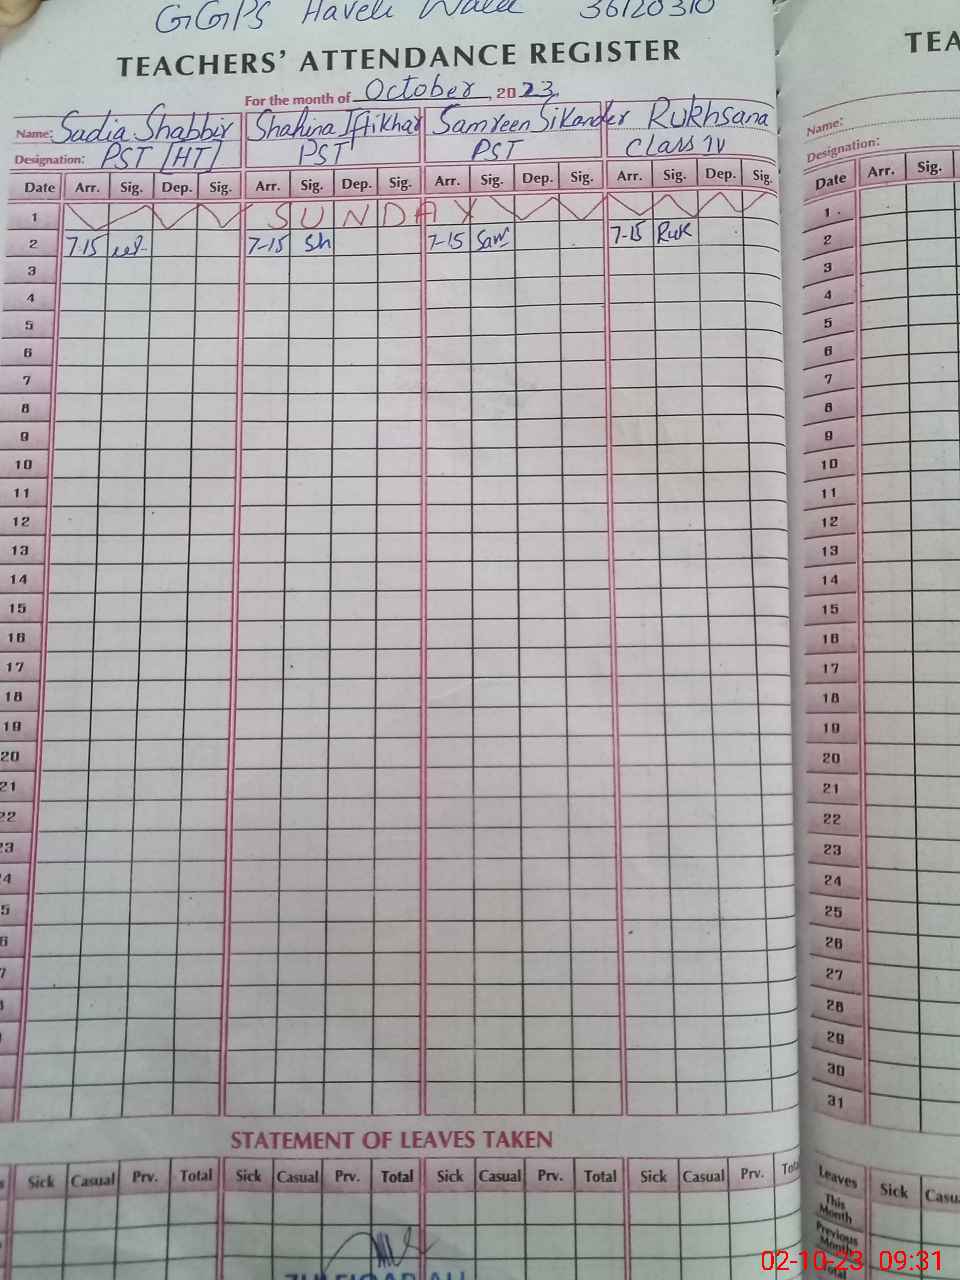 GGPS Haveli Wala 36120310
TEACHERS' ATTENDANCE REGISTER
For the month of October, 2023
Name: Sadia Shabbir Shahina Iftikhar Samreen Sikander Rukhsana
Designation: PST [HT] PST PST Class IV
Date Arr. Sig. Dep. Sig. Arr. Sig. Dep. Sig. Arr. Sig. Dep. Sig. Arr. Sig. Dep. Sig.
1 SUNDAY
2 7-15 7-15 Sh 7-15 Sam 7-15 Ruk
3
4
5
6
7
8
9
10
11
12
13
14
15
16
17
18
19
20
21
22
23
4
5
6
7
STATEMENT OF LEAVES TAKEN
Sick Casual Prv. Total Sick Casual Prv. Total Sick Casual Prv. Total Sick Casual Prv. Tota
TEA
Name:
Designation:
Date Arr. Sig.
1
2
3
4
5
6
7
8
9
10
11
12
13
14
15
16
17
18
19
20
21
22
23
24
25
26
27
28
29
30
31
Leaves Sick Casu
This Month
Previous Month
Total
02-10-23 09:31